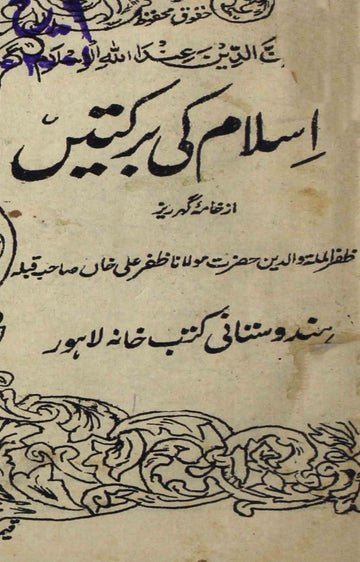 حقوق محفوظ
ت الدّین عند اللہ الاسلام
اسلام کی برکتیں
از خامۂ گہر ریز
ظفر الملۃ والدین حضرت مولانا ظفر علی خاں صاحب قبلہ
ہندوستانی کتب خانہ لاہور